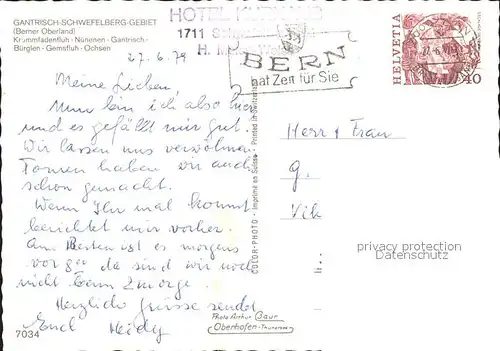 GANTRISCH-SCHWEFELBERG-GEBIET
(Berner Oberland)
Krummfadenfluh - Nünenen - Gantrisch -
Bürglen - Gemsfluh - Ochsen
HOTEL
1711
H.
BERN
hat Zeit für Sie
HELVETIA
40
27.6.79
Meine Lieben,
Nun bin ich also hier
und es gefällt mir gut.
Wir lassen uns verwöhnen
Touren haben wir auch
schon gemacht.
Wenn Ihr mal kommt
berichtet mir vorher.
Am Besten ist es morgens
vor 9 da sind wir noch
nicht beim Zmorge.
Herzliche Grüsse sendet
Euch Heidy
COLOR-PHOTO - Imprimé en Suisse - Printed in Switzerland
Herr & Frau
G.
Vik
privacy protection
Datenschutz
Photo Arthur Baur
Oberhofen-Thunersee
7034